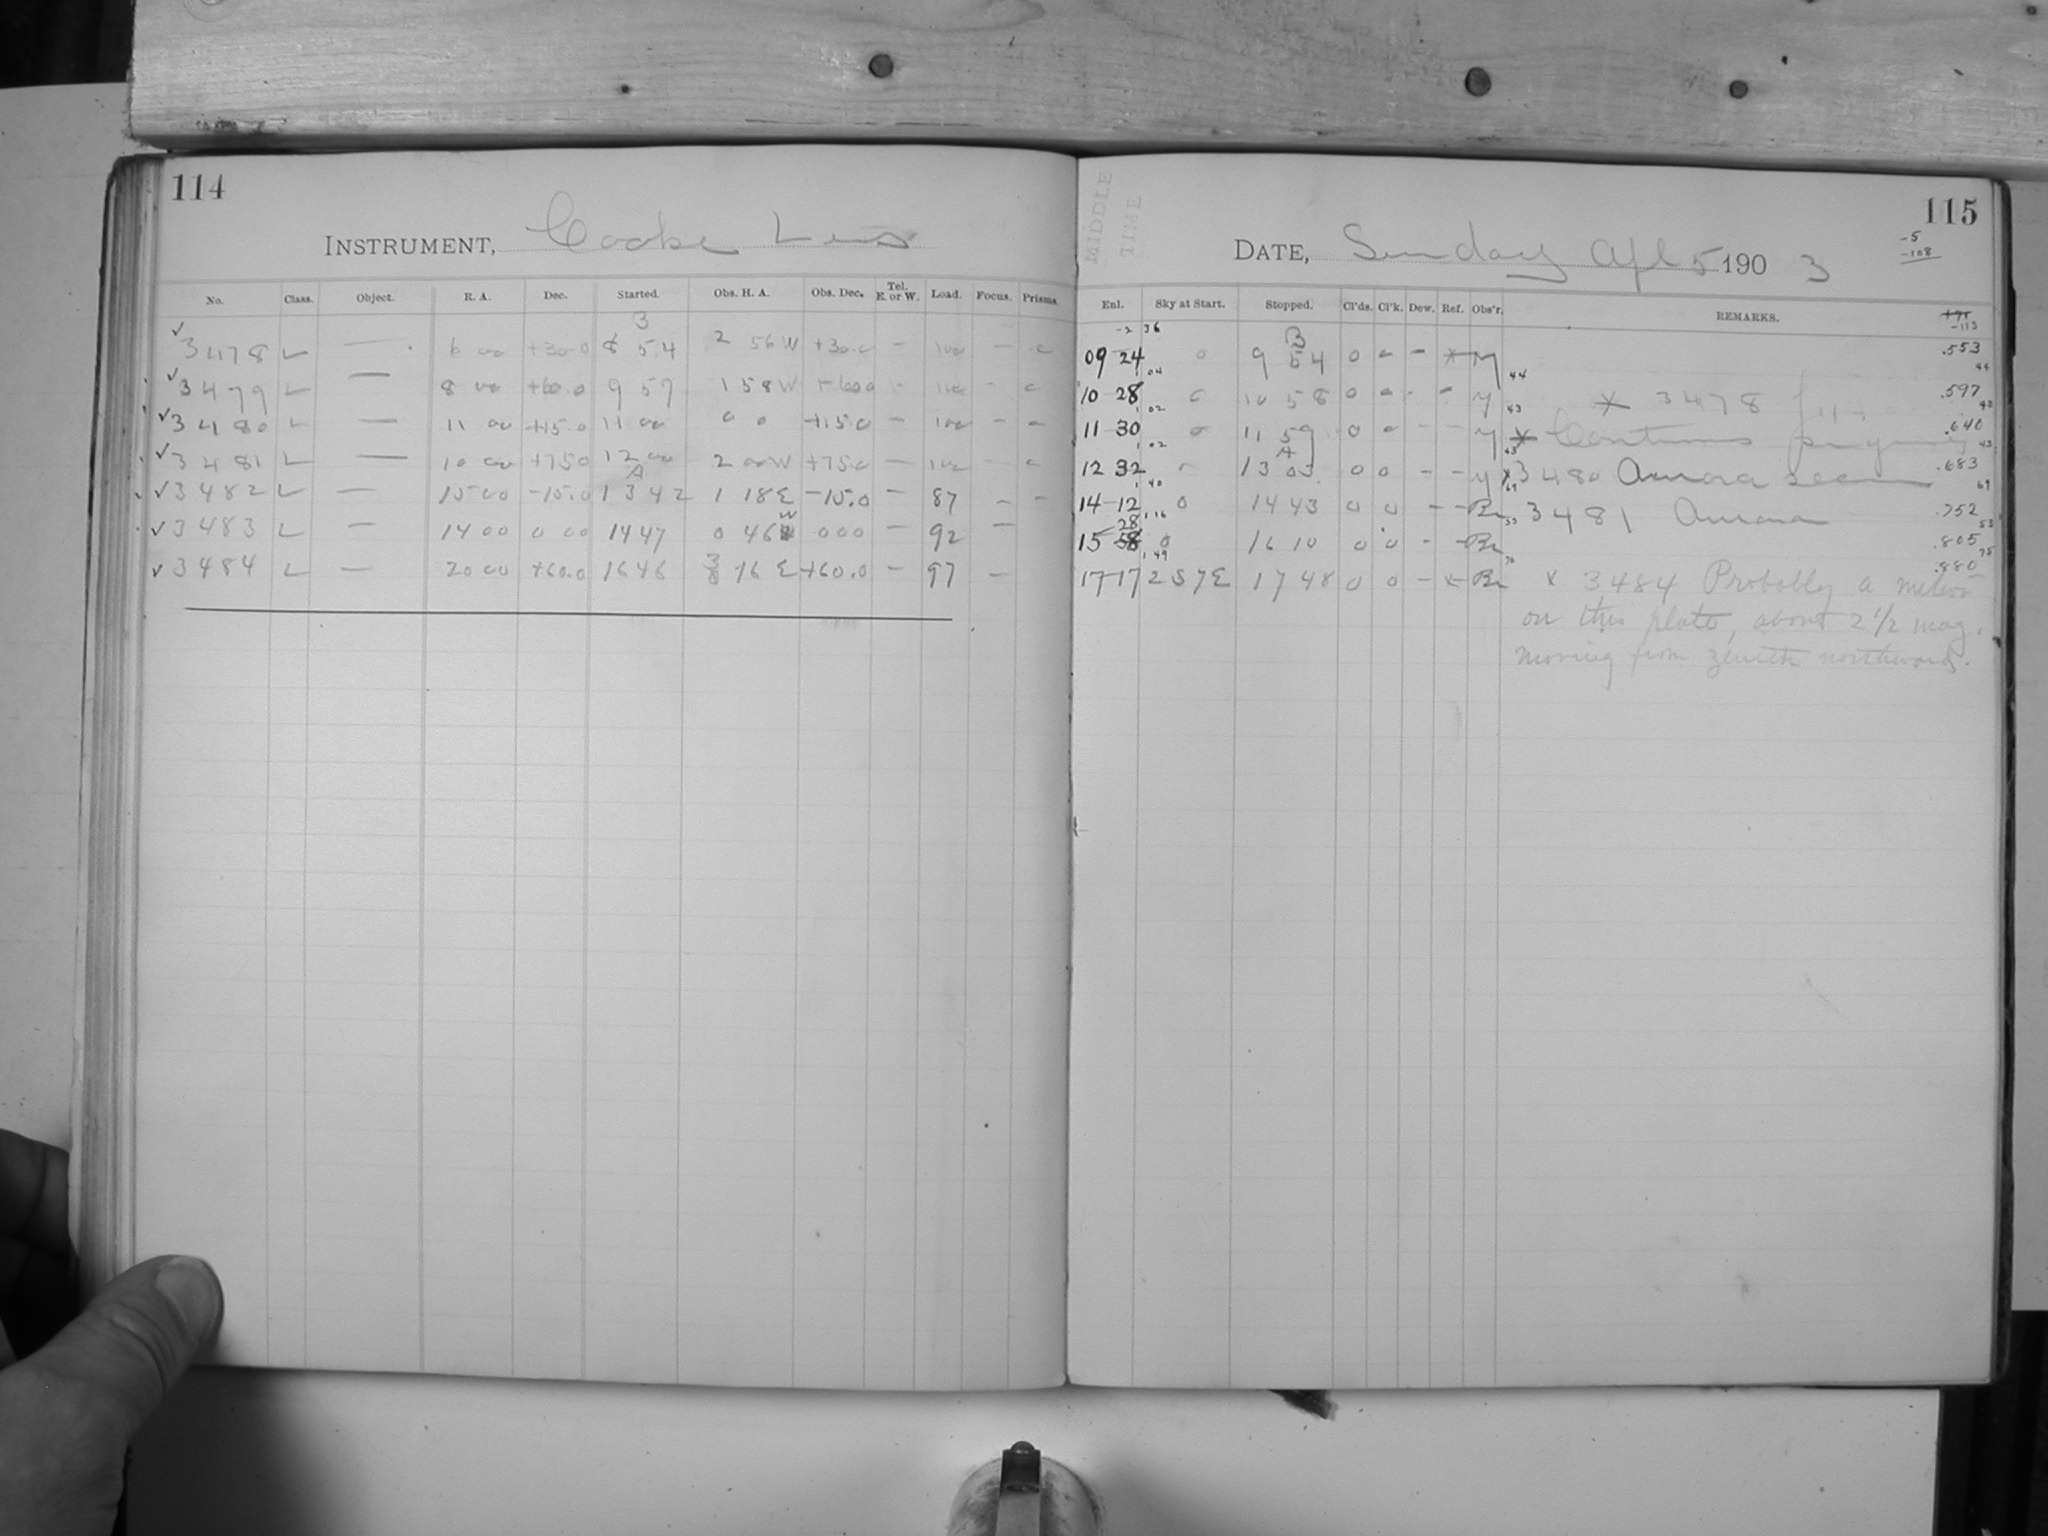 114
INSTRUMENT, Cooke Lens
No. Class. Object. R. A. Dec. Started. Obs. H. A. Obs. Dec. Tel. E. or W. Load. Focus. Prisms.
B
✓ 3478 L — 6 00 +30.0 8 54 2 56 W +30.0 — 100 — 0
✓ 3479 L — 8 00 +60.0 9 57 1 58 W +60.0 - 100 - 0
✓ 3480 L — 11 00 +15.0 11 00 0 0 +15.0 — 100 - 0
✓ 3481 L — 10 00 +75.0 12 00 2 00 W +75.0 — 100 - 0
A
✓ 3482 L — 15 00 -15.0 13 42 1 18 E -15.0 - 87 - -
✓ 3483 L — 14 00 0 00 14 47 0 46 W 0 00 — 92 —
✓ 3484 L — 20 00 +60.0 16 46 3 16 E +60.0 — 97 —
MIDDLE
TIME
115
-5
-108
DATE, Sunday Apl 5 1903
Enl. Sky at Start. Stopped. Cl'ds. Cl'k. Dew. Ref. Obs'r. REMARKS.
-113
-2 36
B
09 24 0 9 54 0 0 - * M .553
1 04 44 44
10 28 0 10 58 0 0 - - M * 3478 .597
1 02 43 43
11 30 0 11 59 0 0 - - M .640
1 02 A 43 43
12 32 0 13 03 0 0 - - M * 3480 Aurora seen .683
1 40 69 69
14 12 0 14 43 0 0 - - Br 3481 Aurora .752
1 16 53 53
15 28 0 16 10 0 0 - - Br .805
1 49 76 75
17 17 2 S 7 E 17 48 0 0 - * Br .880
* 3484 Probably a meteor
on this plate, about 2 1/2 mag.
moving from zenith northward.